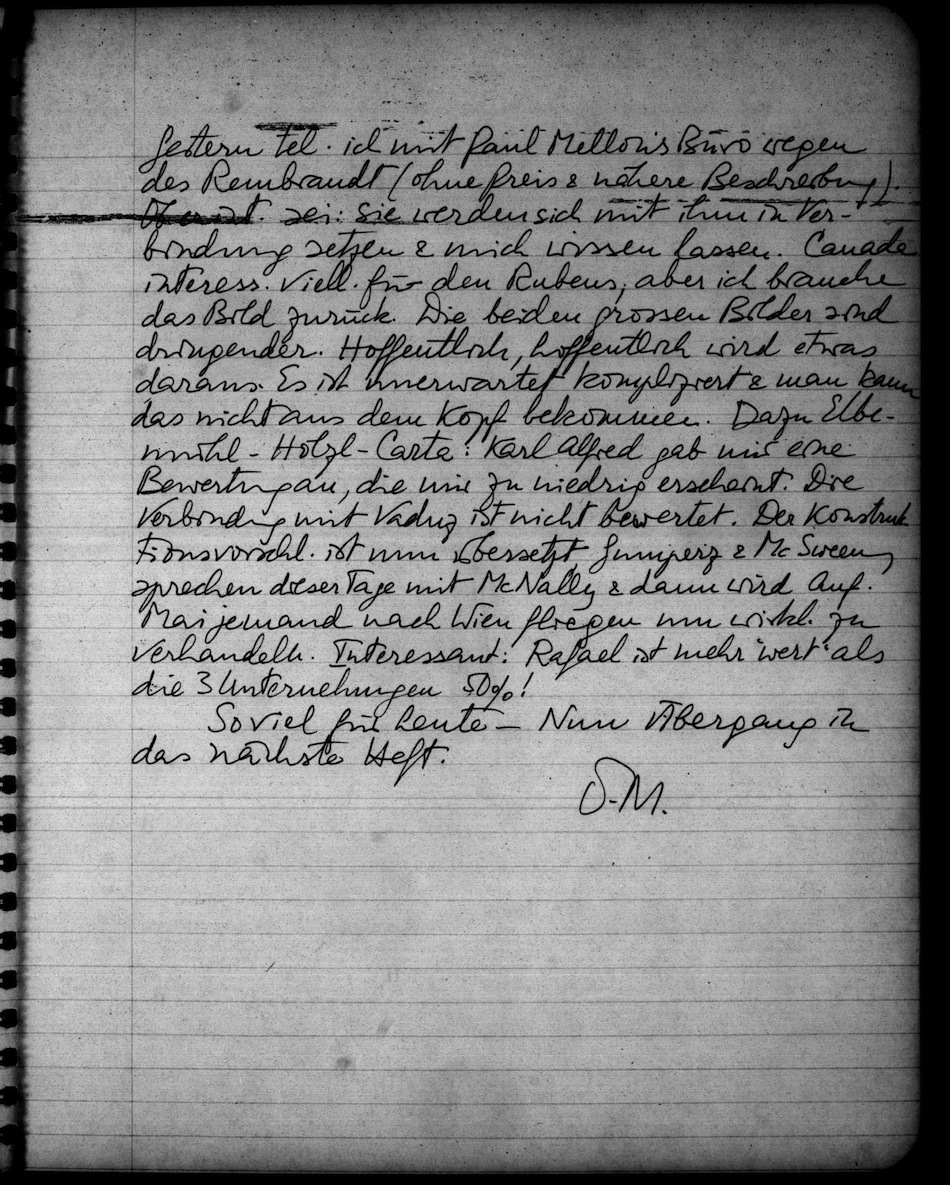 Gestern tel. ich mit Paul Mellons Büro wegen
des Rembrandt (ohne Preis & nähere Beschreibung).
sei: Sie werden sich mit ihm in Ver-
bindung setzen & mich wissen lassen. Canada
interess. viell. für den Rubens, aber ich brauche
das Bild zurück. Die beiden grossen Bilder sind
dringender. Hoffentlich, hoffentlich wird etwas
daraus. Es ist unerwartet kompliziert & man kann
das nicht aus dem Kopf bekommen. Dazu Elbe-
mühl - Holzl - Carta: Karl Alfred gab mir eine
Bewertung an, die mir zu niedrig erscheint. Die
Verbindg mit Vaduz ist nicht bewertet. Der Konstruk
tionsvorschl. ist nun übersetzt, Gumperz & McSweeny
sprechen dieser Tage mit McNally & dann wird Anf.
Mai jemand nach Wien fliegen um wirkl. zu
verhandeln. Interessant: Rafael ist mehr "wert" als
die 3 Unternehmungen 50%!
Soviel für heute - Nun Übergang in
das nächste Heft.
O.M.